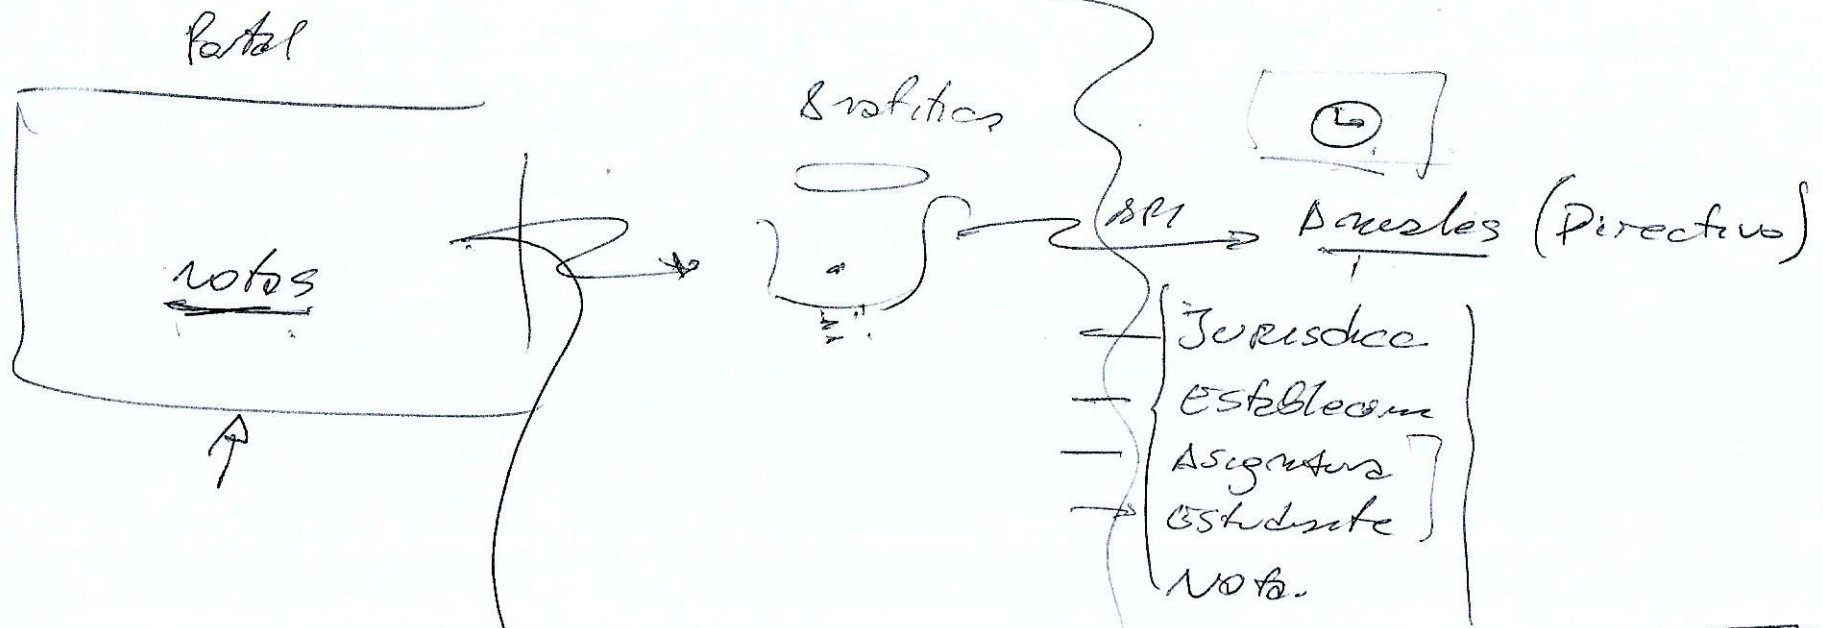 Portal
notas
Analitica
API
Anuales (Directivo)
Jurisdicc
Establecim
Asignatura
Estudiante
Nota.